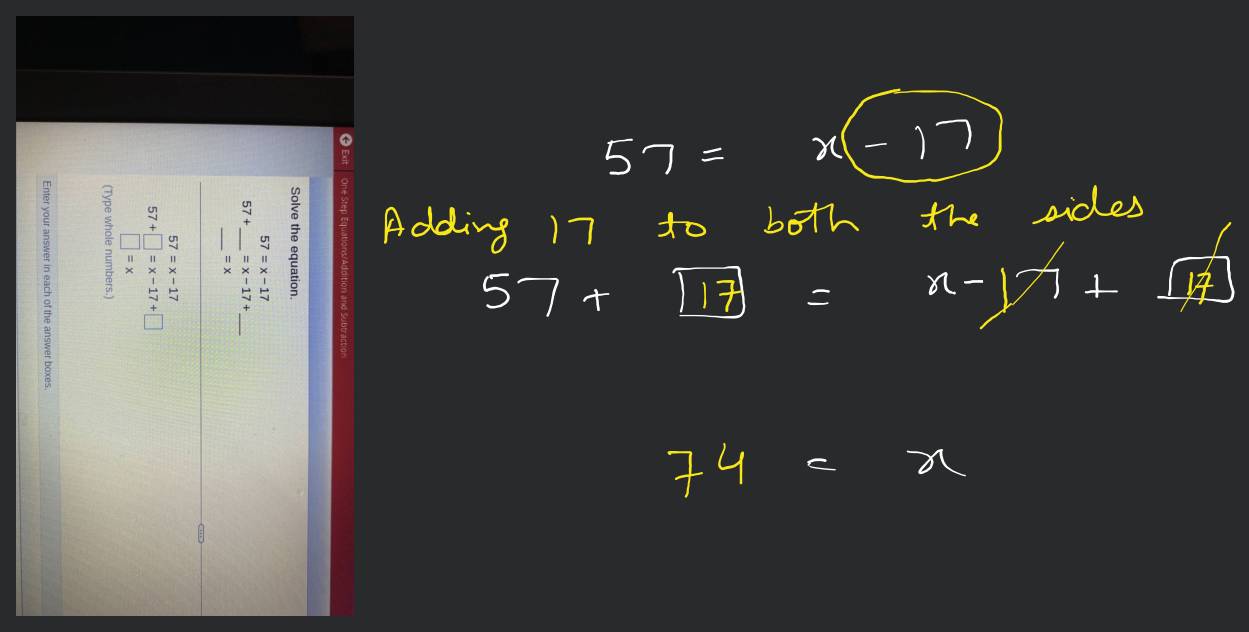 Exit One Step Equations/Addition and Subtraction
Solve the equation.
57 = x − 17
57 + ___ = x − 17 + ___
___ = x
57 = x − 17
57 + □ = x − 17 + □
□ = x
(Type whole numbers.)
Enter your answer in each of the answer boxes.
57 = x - 17
Adding 17 to both the sides
57 + 17 = x - 17 + 17
74 = x